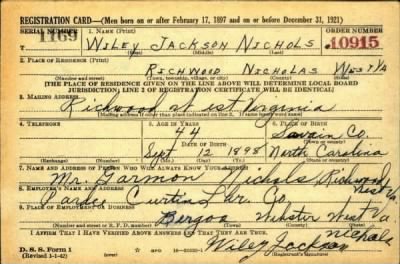 REGISTRATION CARD—(Men born on or after February 17, 1897 and on or before December 31, 1921)
SERIAL NUMBER 1. NAME (Print) ORDER NUMBER
1169 WILEY JACKSON NICHOLS 10915
(First) (Middle) (Last)
2. PLACE OF RESIDENCE (Print)
RICHWOOD NICHOLAS WEST VA
(Number and street) (Town, township, village, or city) (County) (State)
[THE PLACE OF RESIDENCE GIVEN ON THE LINE ABOVE WILL DETERMINE LOCAL BOARD
JURISDICTION; LINE 2 OF REGISTRATION CERTIFICATE WILL BE IDENTICAL]
3. MAILING ADDRESS
Richwood West Virginia
[Mailing address if other than place indicated on line 2. If same insert word same]
4. TELEPHONE 5. AGE IN YEARS 6. PLACE OF BIRTH
44 Swain Co.
DATE OF BIRTH (Town or county)
Sept 12 1898 North Carolina
(Exchange) (Number) (Mo.) (Day) (Yr.) (State or country)
7. NAME AND ADDRESS OF PERSON WHO WILL ALWAYS KNOW YOUR ADDRESS
Mr. Garmon Nichols Richwood West Va.
8. EMPLOYER'S NAME AND ADDRESS
Pardee Curtin Lbr. Co.
9. PLACE OF EMPLOYMENT OR BUSINESS
Bergoo Webster West Va.
(Number and street or R. F. D. number) (Town) (County) (State)
I AFFIRM THAT I HAVE VERIFIED ABOVE ANSWERS AND THAT THEY ARE TRUE.
D. S. S. Form 1
(Revised 3-1-42) (over)
Wiley Jackson Nichols